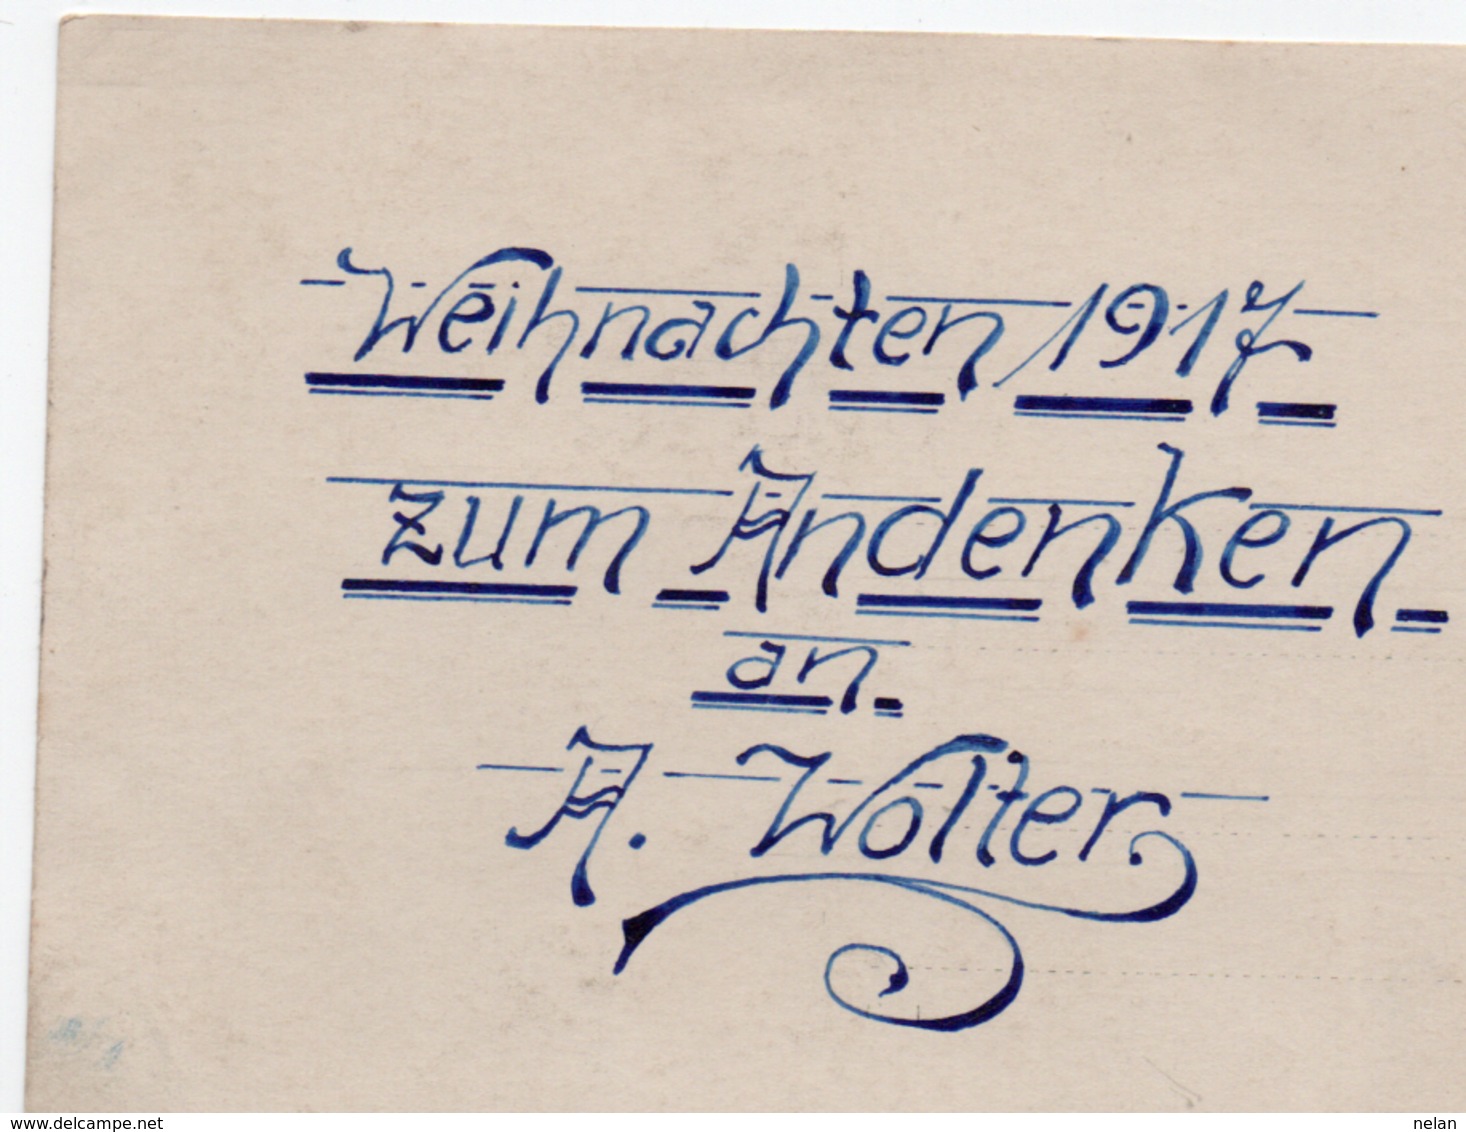 Weihnachten 1917
zum Andenken
an
A. Wolter.
www.delcampe.net
nelan